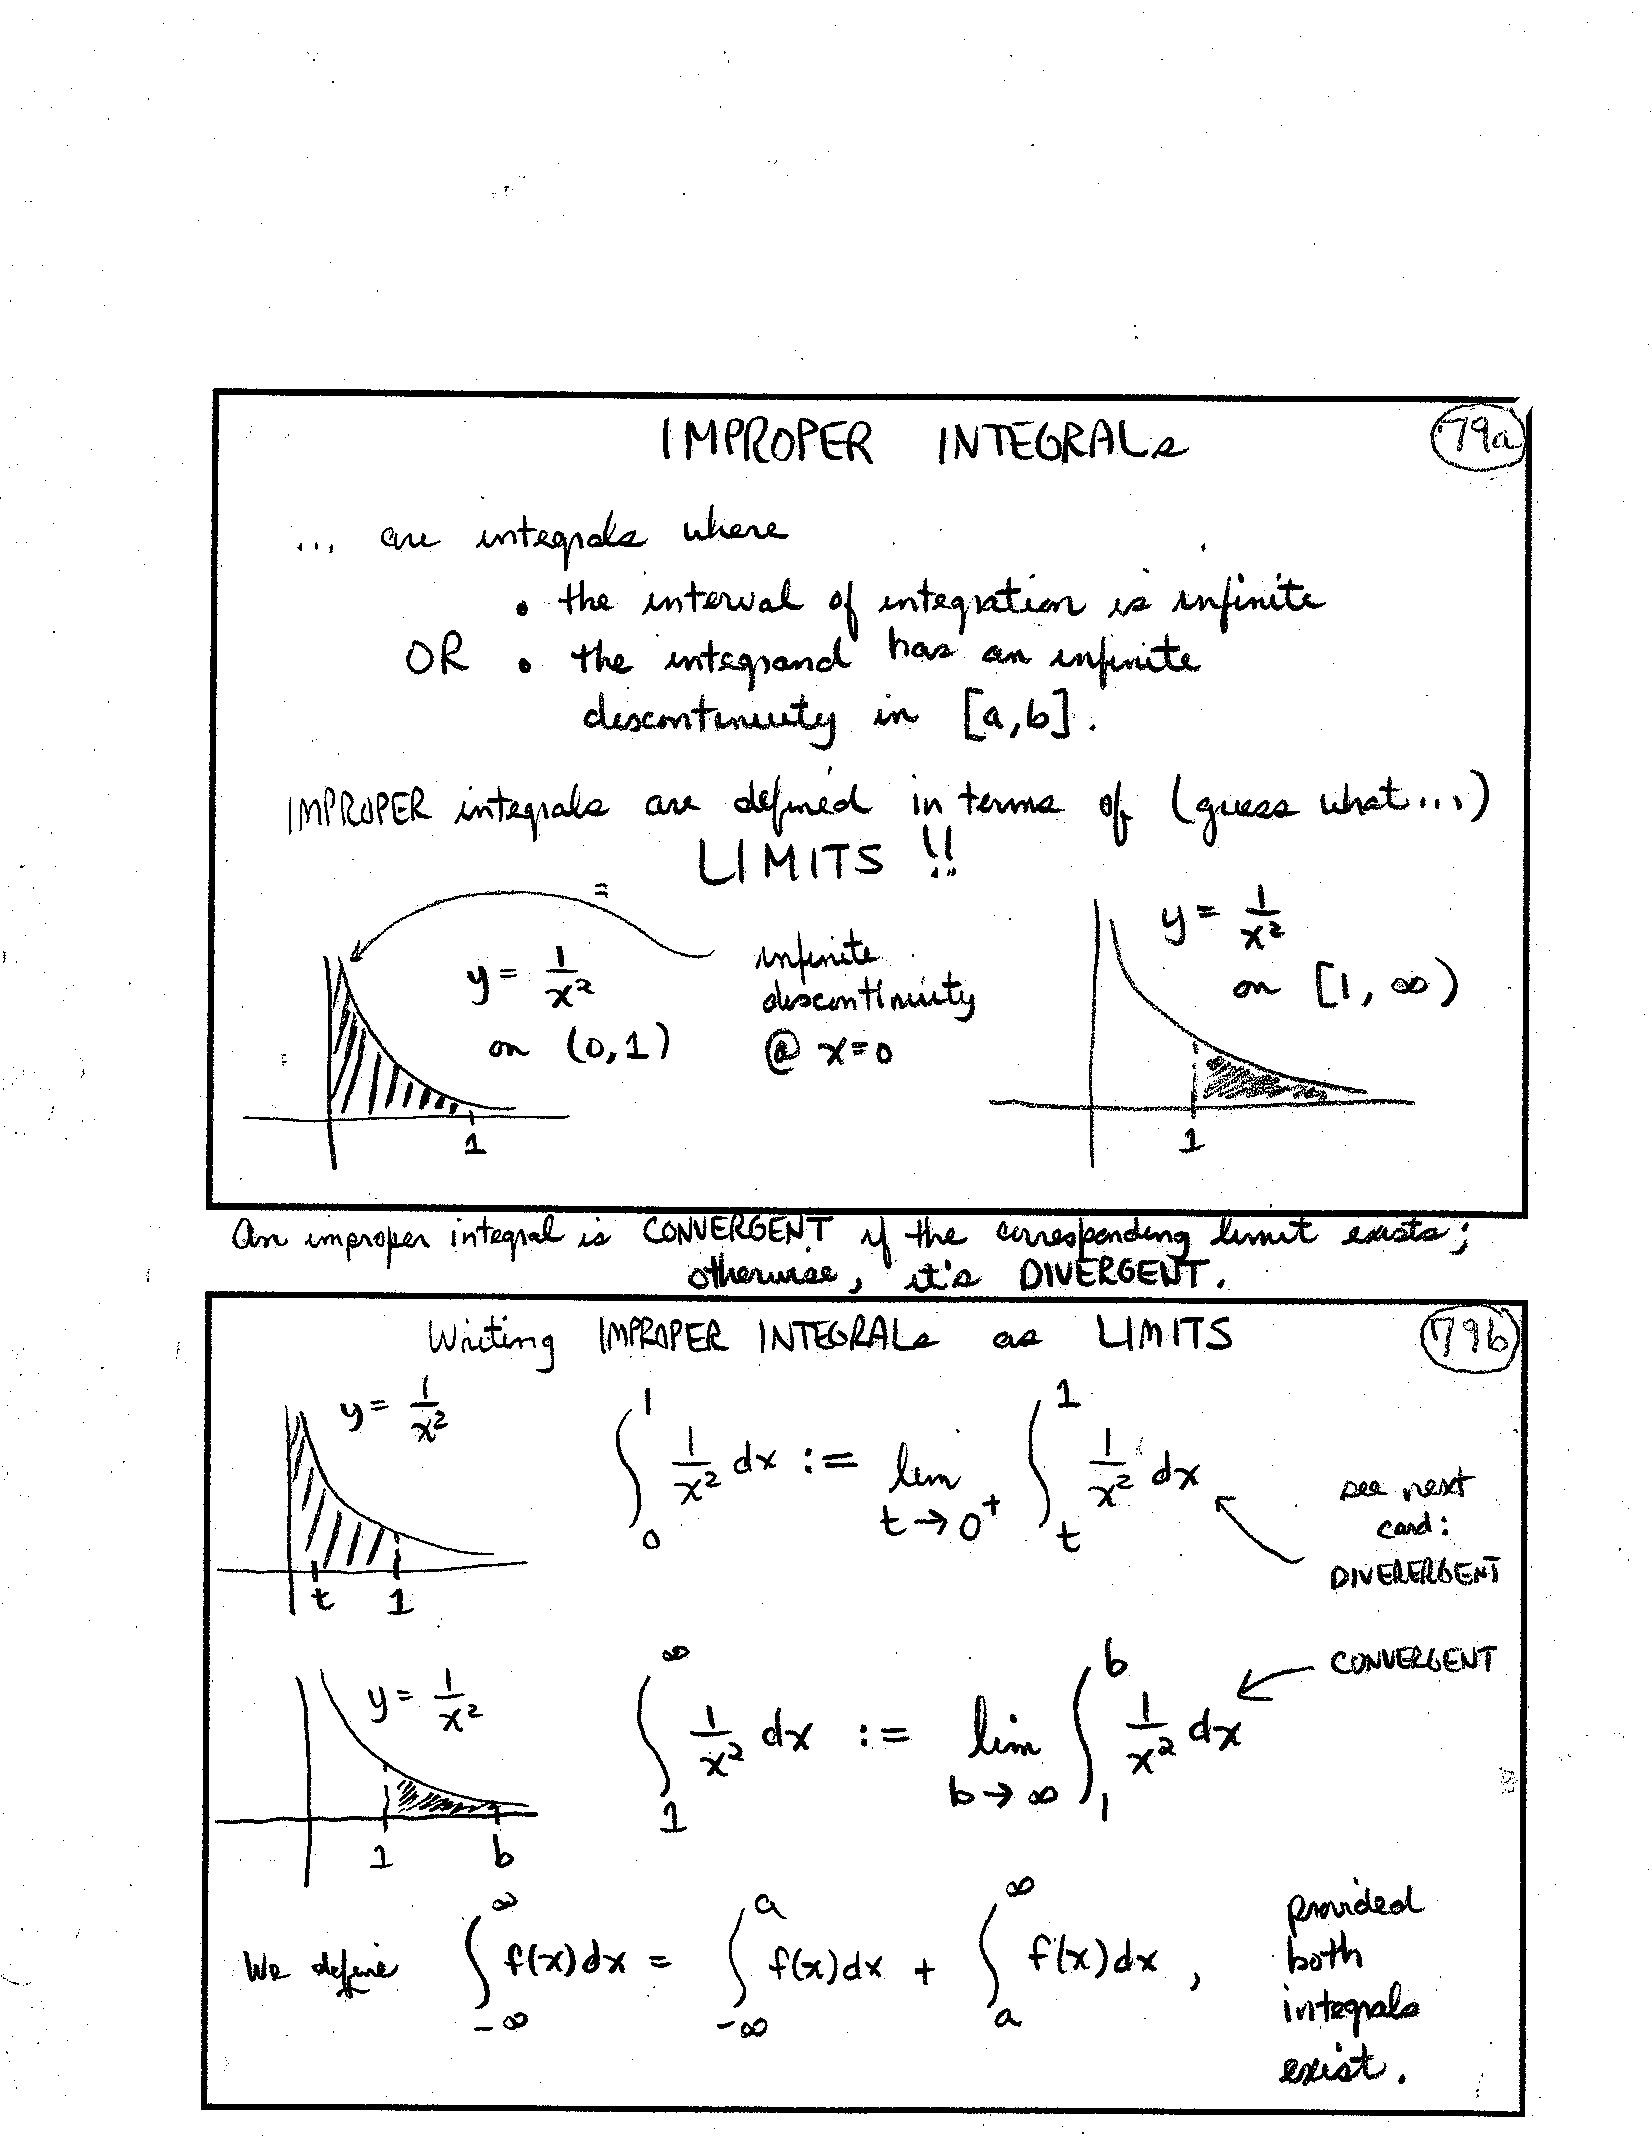 IMPROPER INTEGRALs
79a
... are integrals where
• the interval of integration is infinite
OR • the integrand has an infinite
discontinuity in [a,b].
IMPROPER integrals are defined in terms of (guess what...)
LIMITS !!
y = 1/x²
on (0,1)
infinite
discontinuity
@ x=0
1
y = 1/x²
on [1, ∞)
1
An improper integral is CONVERGENT if the corresponding limit exists;
otherwise, it's DIVERGENT.
Writing IMPROPER INTEGRALs as LIMITS
79b
y = 1/x²
t 1
∫₀¹ 1/x² dx := lim t→0⁺ ∫ₜ¹ 1/x² dx
see next
card:
DIVERERGENT
CONVERGENT
y = 1/x²
1 b
∫₁^∞ 1/x² dx := lim b→∞ ∫₁^b 1/x² dx
We define ∫_{-∞}^∞ f(x)dx = ∫_{-∞}^a f(x)dx + ∫_a^∞ f(x)dx ,
provided
both
integrals
exist.